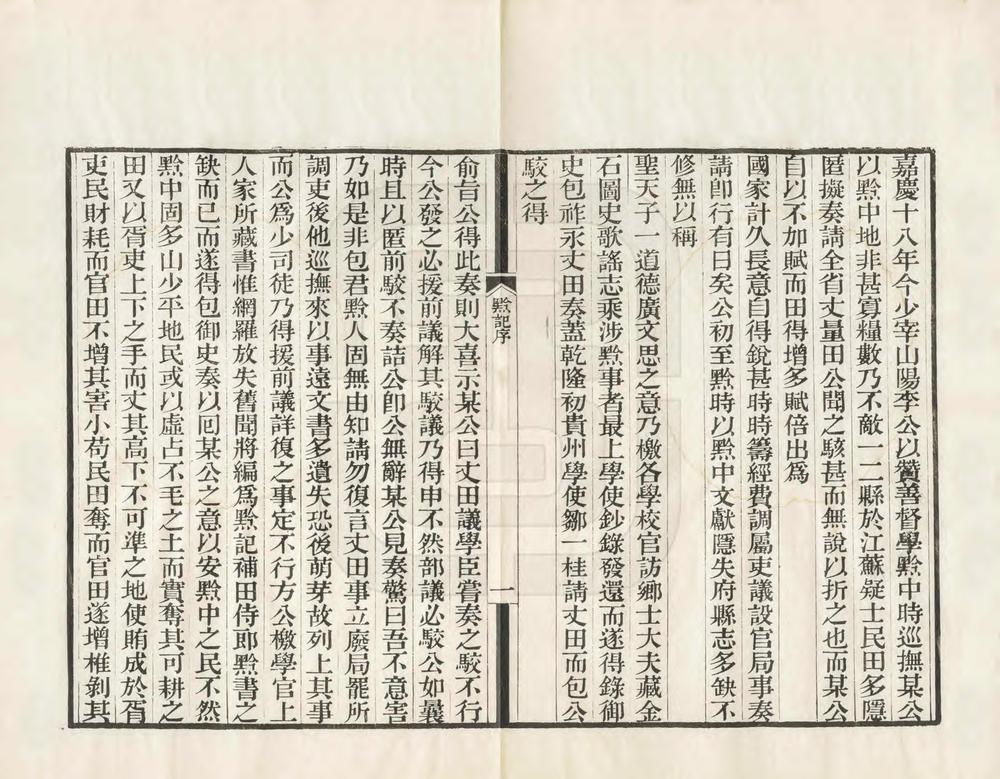 嘉慶十八年今少宰山陽李公以贊善督學黔中時巡撫某公
以黔中地非甚寡糧數乃不敵一二縣於江蘇疑士民田多隱
匿擬奏請全省丈量田公聞之駭甚而無說以折之也而某公
自以不加賦而田得增多賦倍出爲
國家計久長意自得銳甚時時籌經費調屬吏議設官局事奏
請卽行有日矣公初至黔時以黔中文獻隱失府縣志多缺不
修無以稱
聖天子一道德廣文思之意乃檄各學校官訪鄉士大夫藏金
石圖史歌謠志乘涉黔事者最上學使鈔錄發還而遂得錄御
史包祚永丈田奏蓋乾隆初貴州學使鄒一桂請丈田而包公
駮之得
黔記序
一
俞旨公得此奏則大喜示某公曰丈田議學臣嘗奏之駮不行
今公發之必援前議解其駮議乃得申不然部議必駮公如曩
時且以匿前駮不奏詰公卽公無辭某公見奏驚曰吾不意害
乃如是非包君黔人固無由知請勿復言丈田事立廢局罷所
調吏後他巡撫來以事遠文書多遺失恐後萌芽故列上其事
而公爲少司徒乃得援前議詳復之事定不行方公檄學官上
人家所藏書惟網羅放失舊聞將編爲黔記補田侍郎黔書之
缺而已而遂得包御史奏以囘某公之意以安黔中之民不然
黔中固多山少平地民或以虛占不毛之土而實奪其可耕之
田又以胥吏上下之手而丈其高下不可準之地使賄成於胥
吏民財耗而官田不增其害小苟民田奪而官田遂增椎剝其